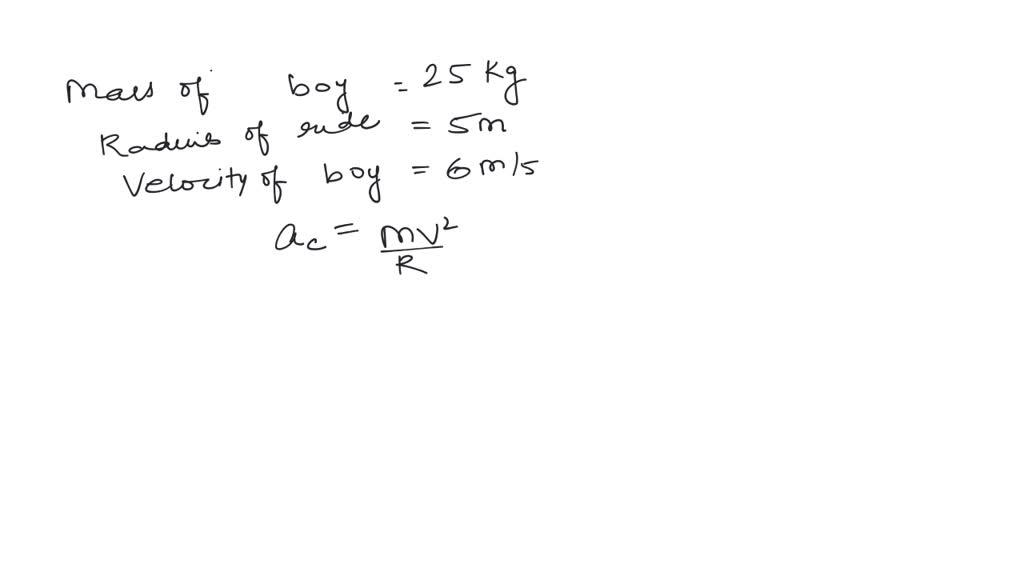 Mass of boy = 25 Kg
Radius of ride = 5m
Velocity of boy = 6 m/s
ac = mv²/R